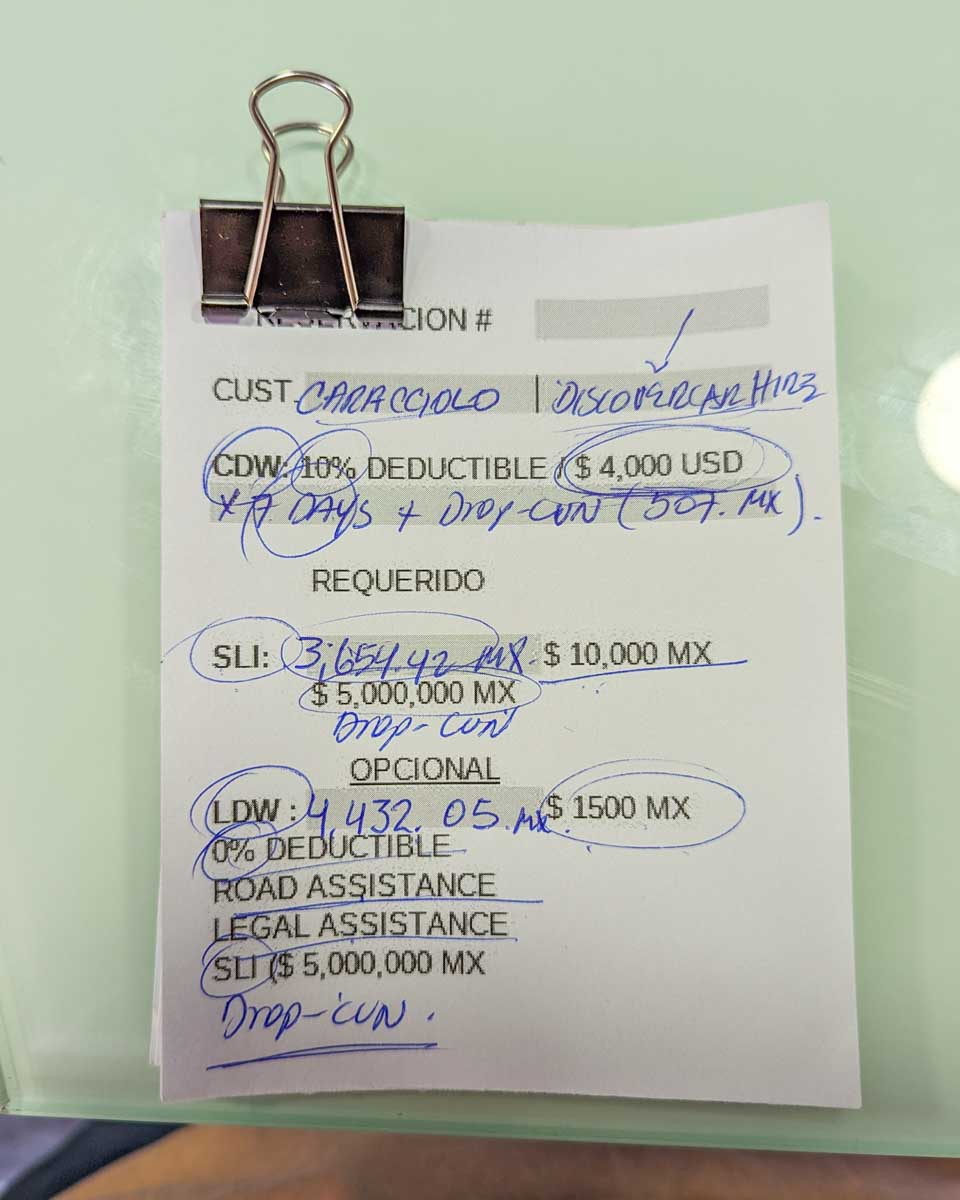 RESERVACION #
CUST CARACCIOLO | DISCOVERCARHIRE
CDW: 10% DEDUCTIBLE / $ 4,000 USD
x 7 DAYS + Drop-CUN (507. MX).
REQUERIDO
SLI: 3,654.42 MX. $ 10,000 MX
$ 5,000,000 MX
Drop-CUN
OPCIONAL
LDW : 4,432.05.MX. $ 1500 MX
0% DEDUCTIBLE
ROAD ASSISTANCE
LEGAL ASSISTANCE
SLI ($ 5,000,000 MX
Drop-CUN.